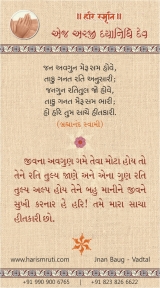 ॥ હરિ સ્મૃતિ ॥
એજ અરજી દયાનિધિ દેવ
જન અવગુન મેરૂ સમ હોવે,
તાકુ ગનત રતિ અનુસારી;
જનગુન રતિતુલ જો હોવે,
તાકુ ગનત મેરૂ સમ ભારી;
હો હરિ તુમ સાચે હીતકારી.
(બ્રહ્માનંદ સ્વામી)
જીવના અવગુણ ગમે તેવા મોટા હોય તો
તેને રતિ તુલ્ય જાણે અને એના ગુણ રતિ
તુલ્ય અલ્પ હોય તેને બહુ માનીને જીવને
સુખી કરનાર હે હરિ! તમે મારા સાચા
હીતકારી છો.
www.harismruti.com
Jnan Baug - Vadtal
+91 990 900 6765 | +91 823 826 6622